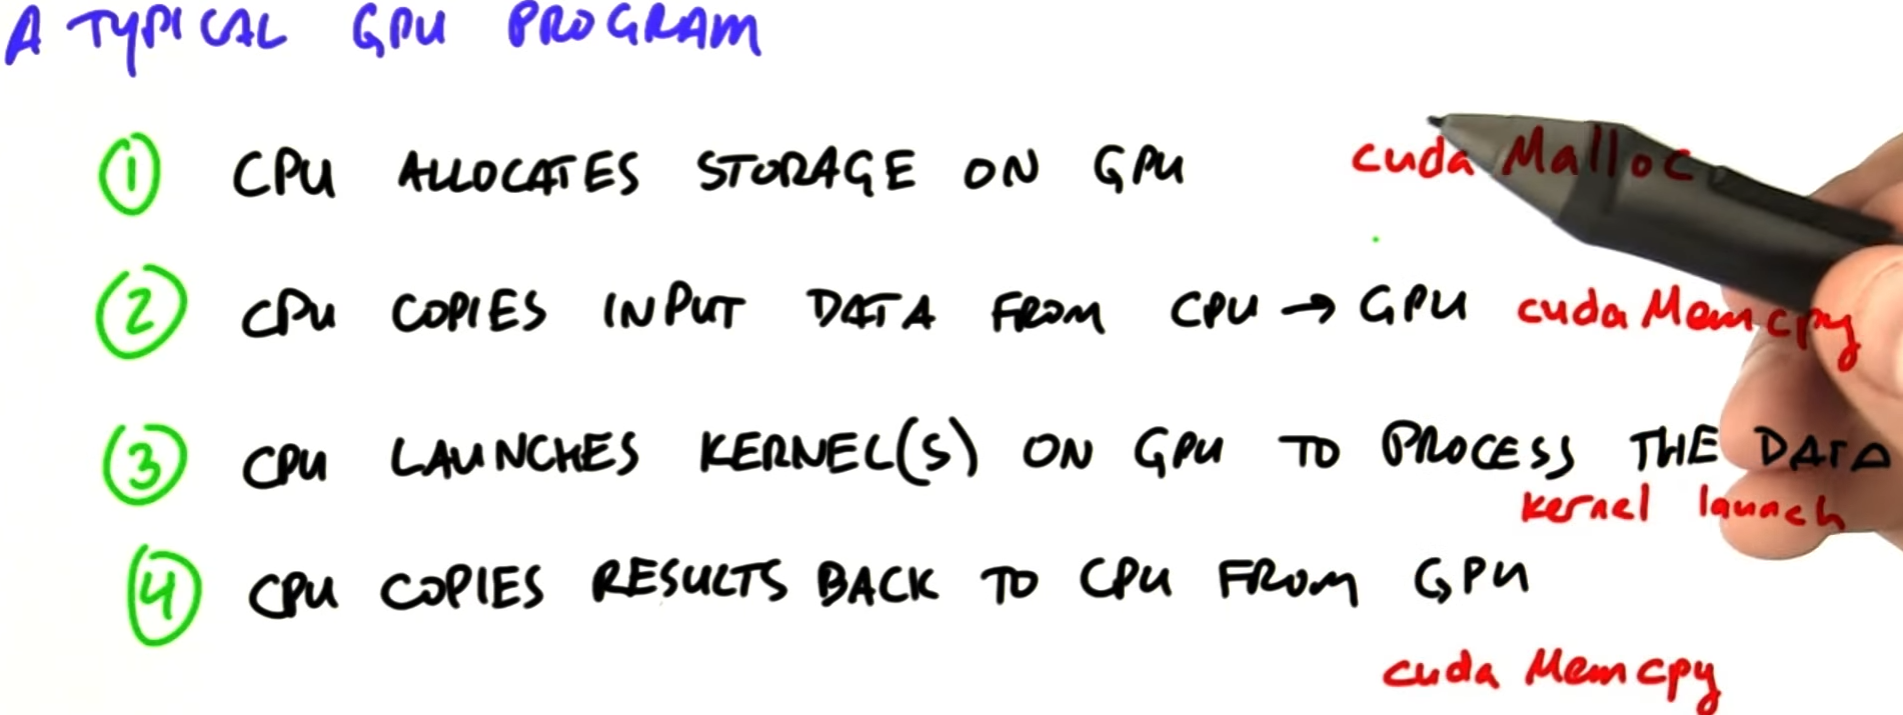 A TYPICAL GPU PROGRAM
1 CPU ALLOCATES STORAGE ON GPU cudaMalloc
2 CPU COPIES INPUT DATA FROM CPU → GPU cudaMemcpy
3 CPU LAUNCHES KERNEL(S) ON GPU TO PROCESS THE DATA
kernel launch
4 CPU COPIES RESULTS BACK TO CPU FROM GPU
cudaMemcpy